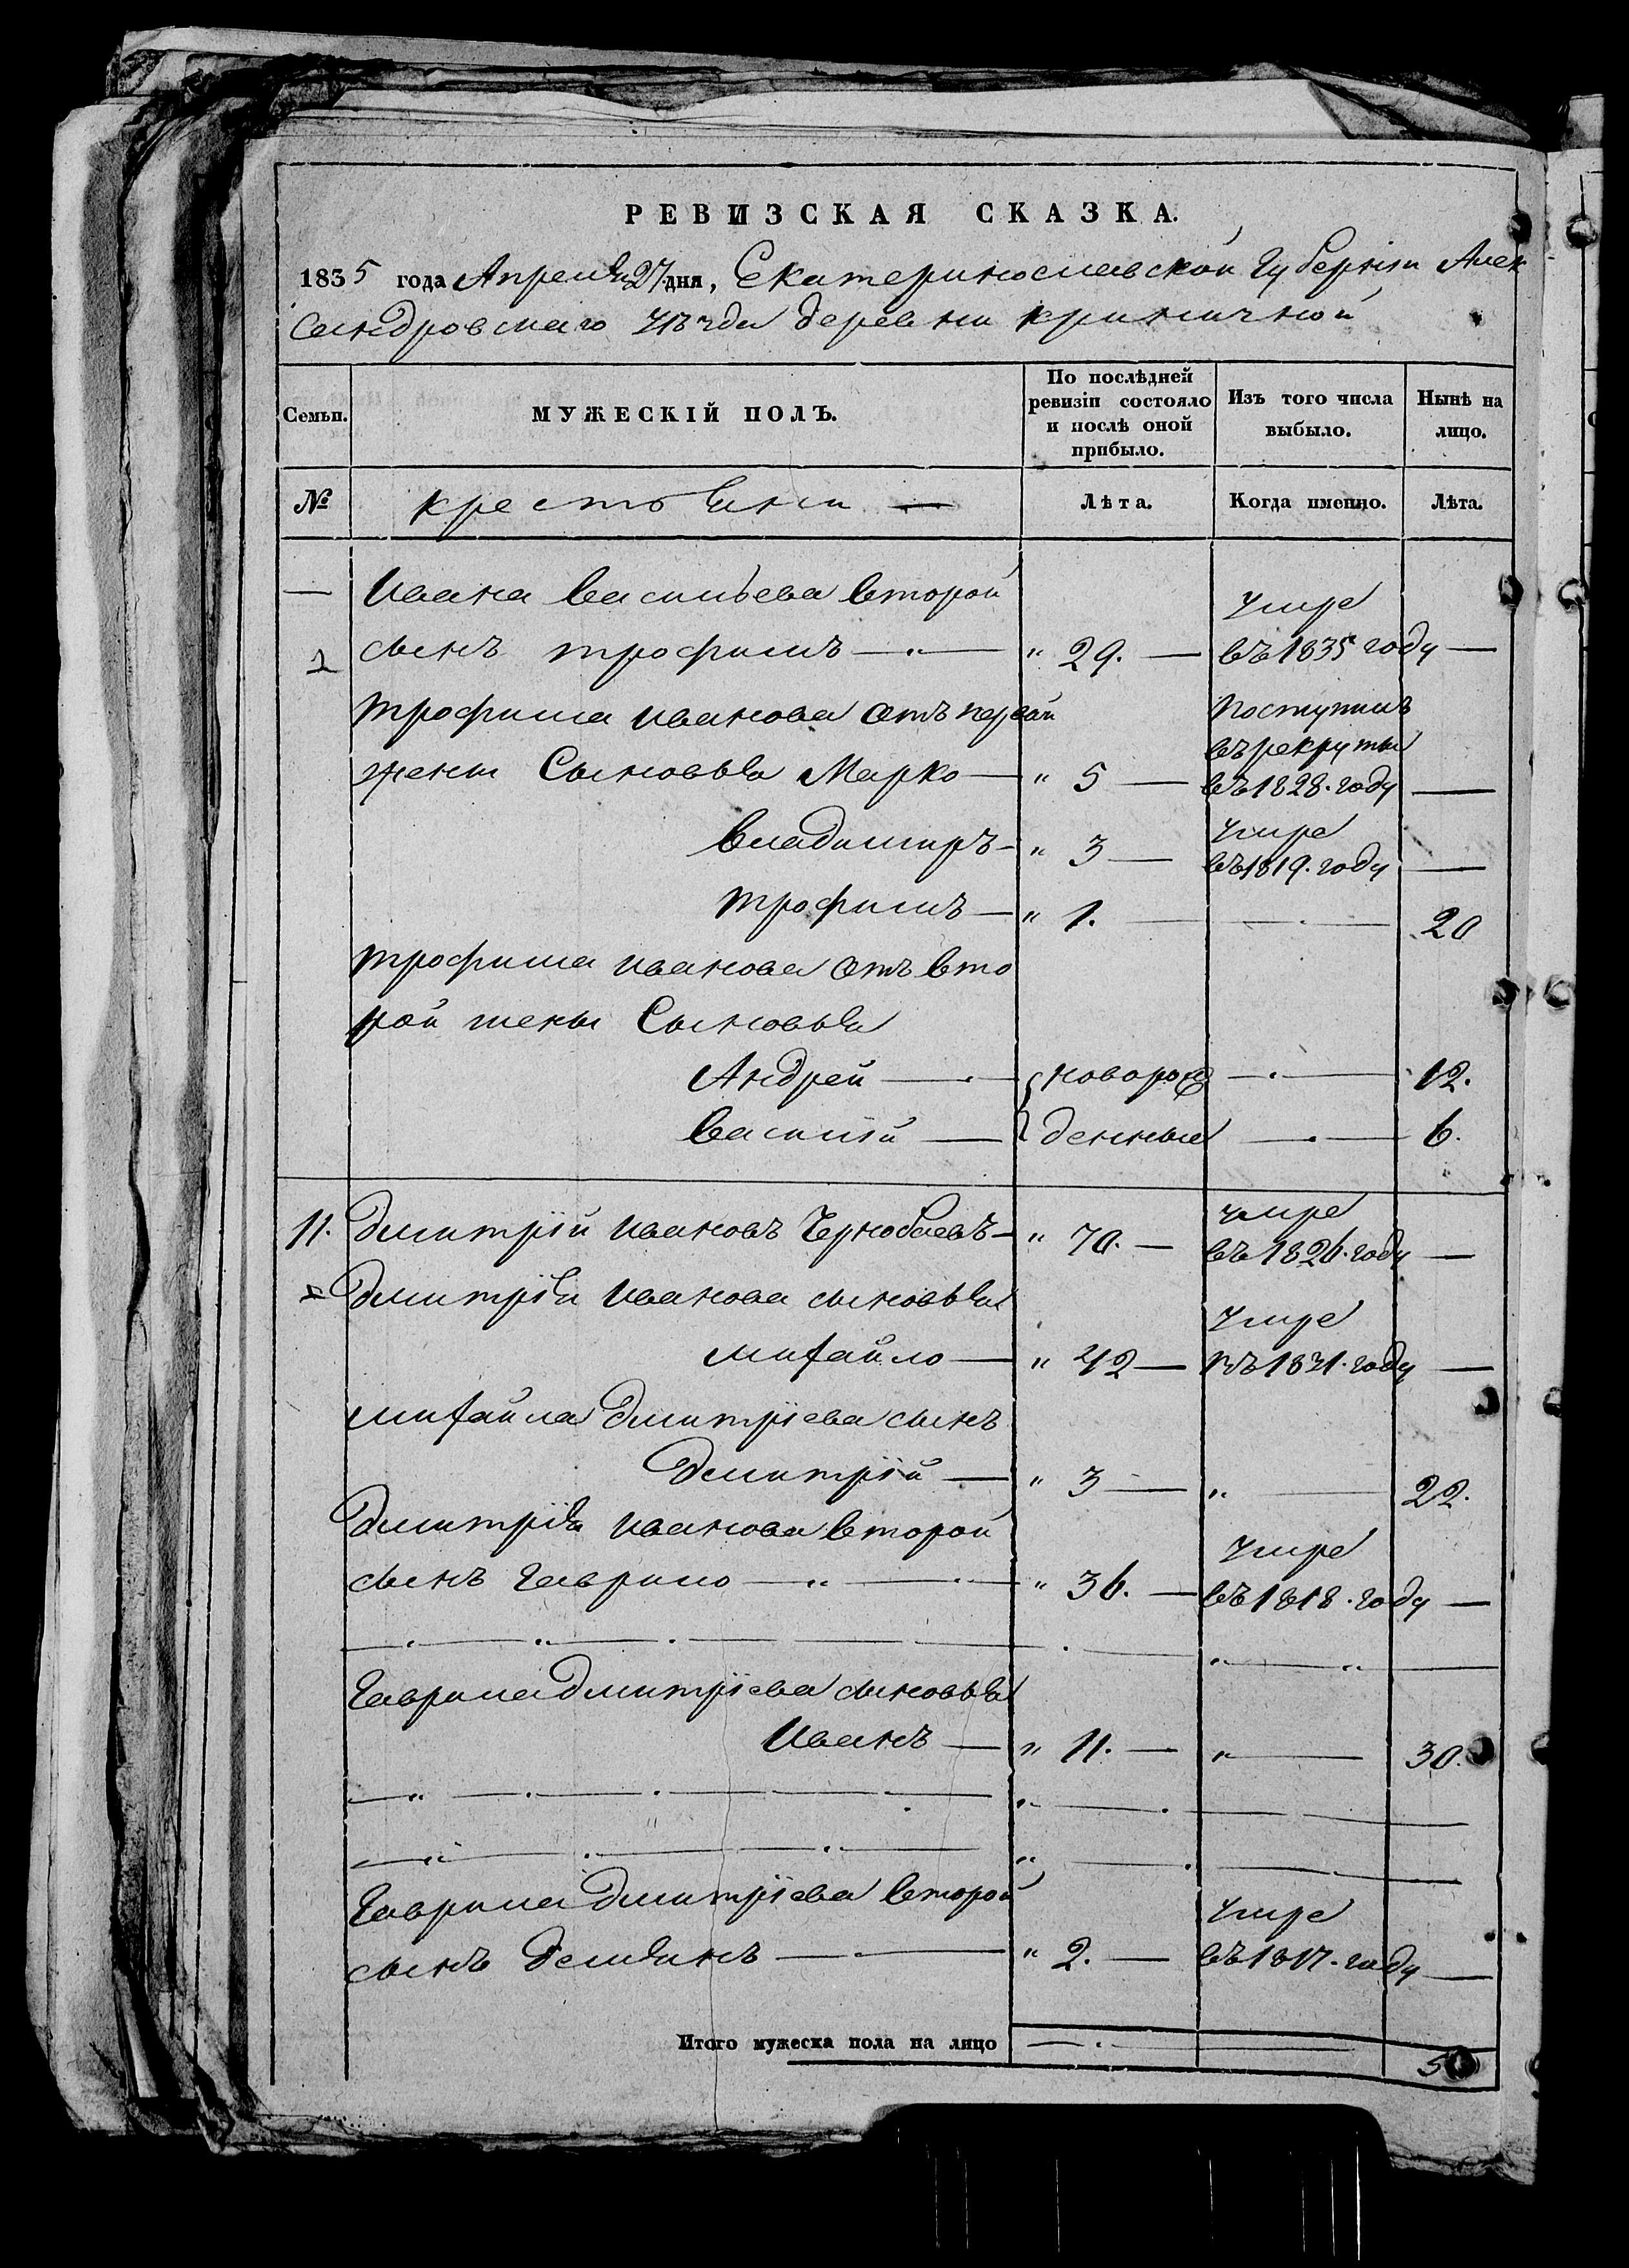 РЕВИЗСКАЯ СКАЗКА.
1835 года Апреля 27 дня, Екатеринославской Губерніи Алек
сандровскаго уѣзда деревни криничной
Семьи.
МУЖЕСКІЙ ПОЛЪ.
По послѣдней ревизіи состояло и послѣ оной прибыло.
Изъ того числа выбыло.
Нынѣ на лицо.
№
крестьяни —
Лѣта.
Когда именно.
Лѣта.
— Ивана васильева второй
умре
сынъ трофимъ — " 29. — въ 1835 году —
трофима иванова отъ первой
поступилъ
въ рекруты
жены Сыновья Марко — " 5 — въ 1828. году —
умре
владимиръ — " 3 — въ 1819. году —
трофимъ — " 1. — — 20
трофима иванова отъ вто
рой жены Сыновья
Андрей — новорож — 12.
василій — денные — 6.
11. Дмитрій ивановъ Чернобаевъ — " 70. —
умре
въ 1826. году —
2 Дмитрія иванова сыновья
умре
михайло — " 42 — въ 1831. году —
михайла Дмитріева сынъ
Дмитрій — " 3 — " — 22.
Дмитрія иванова второй
умре
сынъ гаврило — " 36. — въ 1818. году —
гаврила Дмитріева сыновья
иванъ — " 11. — " — 30.
гаврила Дмитріева второй
умре
сынъ Демянъ — " 2. — въ 1817. году —
Итого мужеска пола на лицо — 5